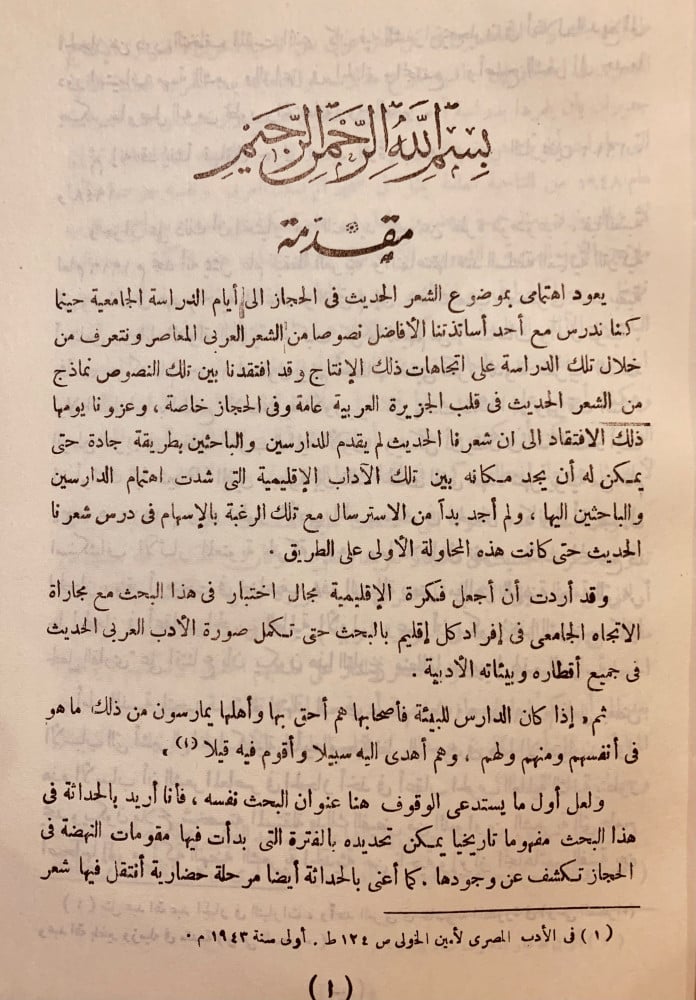 بِسْمِ اللَّهِ الرَّحْمَنِ الرَّحِيمِ
مقدمة
يعود اهتمامى بموضوع الشعر الحديث فى الحجاز الى أيام الدراسة الجامعية حينما
كنا ندرس مع أحد أساتذتنا الأفاضل نصوصا من الشعر العربى المعاصر ونتعرف من
خلال تلك الدراسة على اتجاهات ذلك الإنتاج وقد افتقدنا بين تلك النصوص نماذج
من الشعر الحديث فى قلب الجزيرة العربية عامة وفى الحجاز خاصة ، وعزونا يومها
ذلك الافتقاد الى ان شعرنا الحديث لم يقدم للدارسين والباحثين بطريقة جادة حتى
يمكن له أن يجد مكانه بين تلك الآداب الإقليمية التى شدت اهتمام الدارسين
والباحثين اليها ، ولم أجد بداً من الاسترسال مع تلك الرغبة بالإسهام فى درس شعرنا
الحديث حتى كانت هذه المحاولة الأولى على الطريق .
وقد أردت أن أجعل فكرة الإقليمية مجال اختبار فى هذا البحث مع مجاراة
الاتجاه الجامعى فى إفراد كل إقليم بالبحث حتى تكمل صورة الأدب العربى الحديث
فى جميع أقطاره وبيئاته الأدبية .
ثم « إذا كان الدارس للبيئة فأصحابها هم أحق بها وأهلها يمارسون من ذلك ما هو
فى أنفسهم ومنهم ولهم ، وهم أهدى اليه سبيلا وأقوم فيه قيلا (١) »
ولعل أول ما يستدعى الوقوف هنا عنوان البحث نفسه ، فأنا أريد بالحداثة فى
هذا البحث مفهوما تاريخيا يمكن تحديده بالفترة التى بدأت فيها مقومات النهضة فى
الحجاز تكشف عن وجودها . كما أعنى بالحداثة أيضا مرحلة حضارية أفتقل فيها شعر
(١) فى الأدب المصرى لأمين الخولى ص ١٢٤ ط . أولى سنة ١٩٤٣ م .
(١)